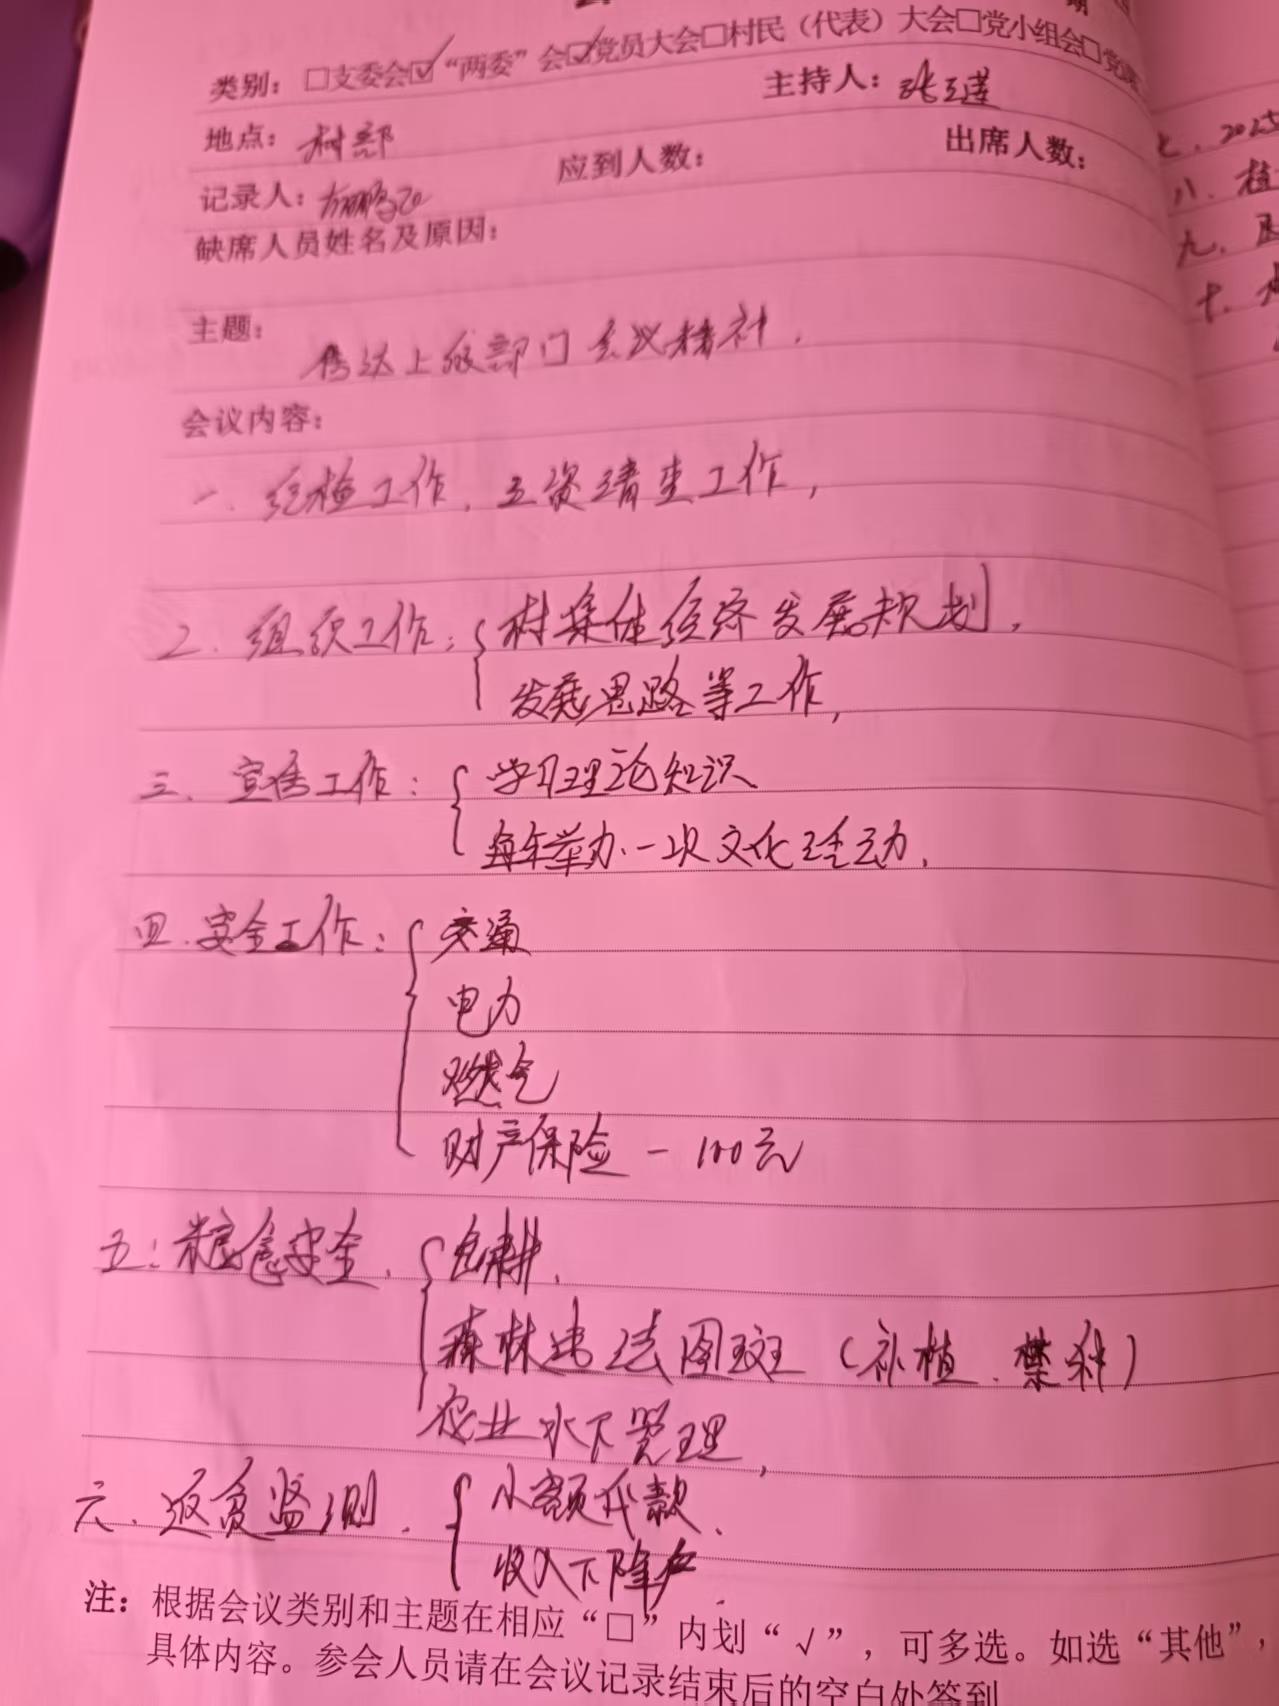 类别：□支委会☑“两委”会☑党员大会□村民（代表）大会□党小组会□党课
地点：村部
主持人：张玉莲
记录人：
应到人数：
出席人数：
缺席人员姓名及原因：
主题：
传达上级部门会议精神.
会议内容：
一.纪检工作.三资清查工作,
2.组织工作：{村集体经济发展规划,
发展思路等工作,
三、宣传工作：{学习理论知识
每年举办一次文化活动.
四.安全工作：{交通
电力
燃气
财产保险－100元
五：粮食安全.{春耕.
森林违法图斑（补植.禁种）
农业水下管理,
六.返贫监测.{小额代款.
收入下降户.
注：根据会议类别和主题在相应“□”内划“√”，可多选。如选“其他”，
具体内容。参会人员请在会议记录结束后的空白处签到
七、2025
八.
九、
十、